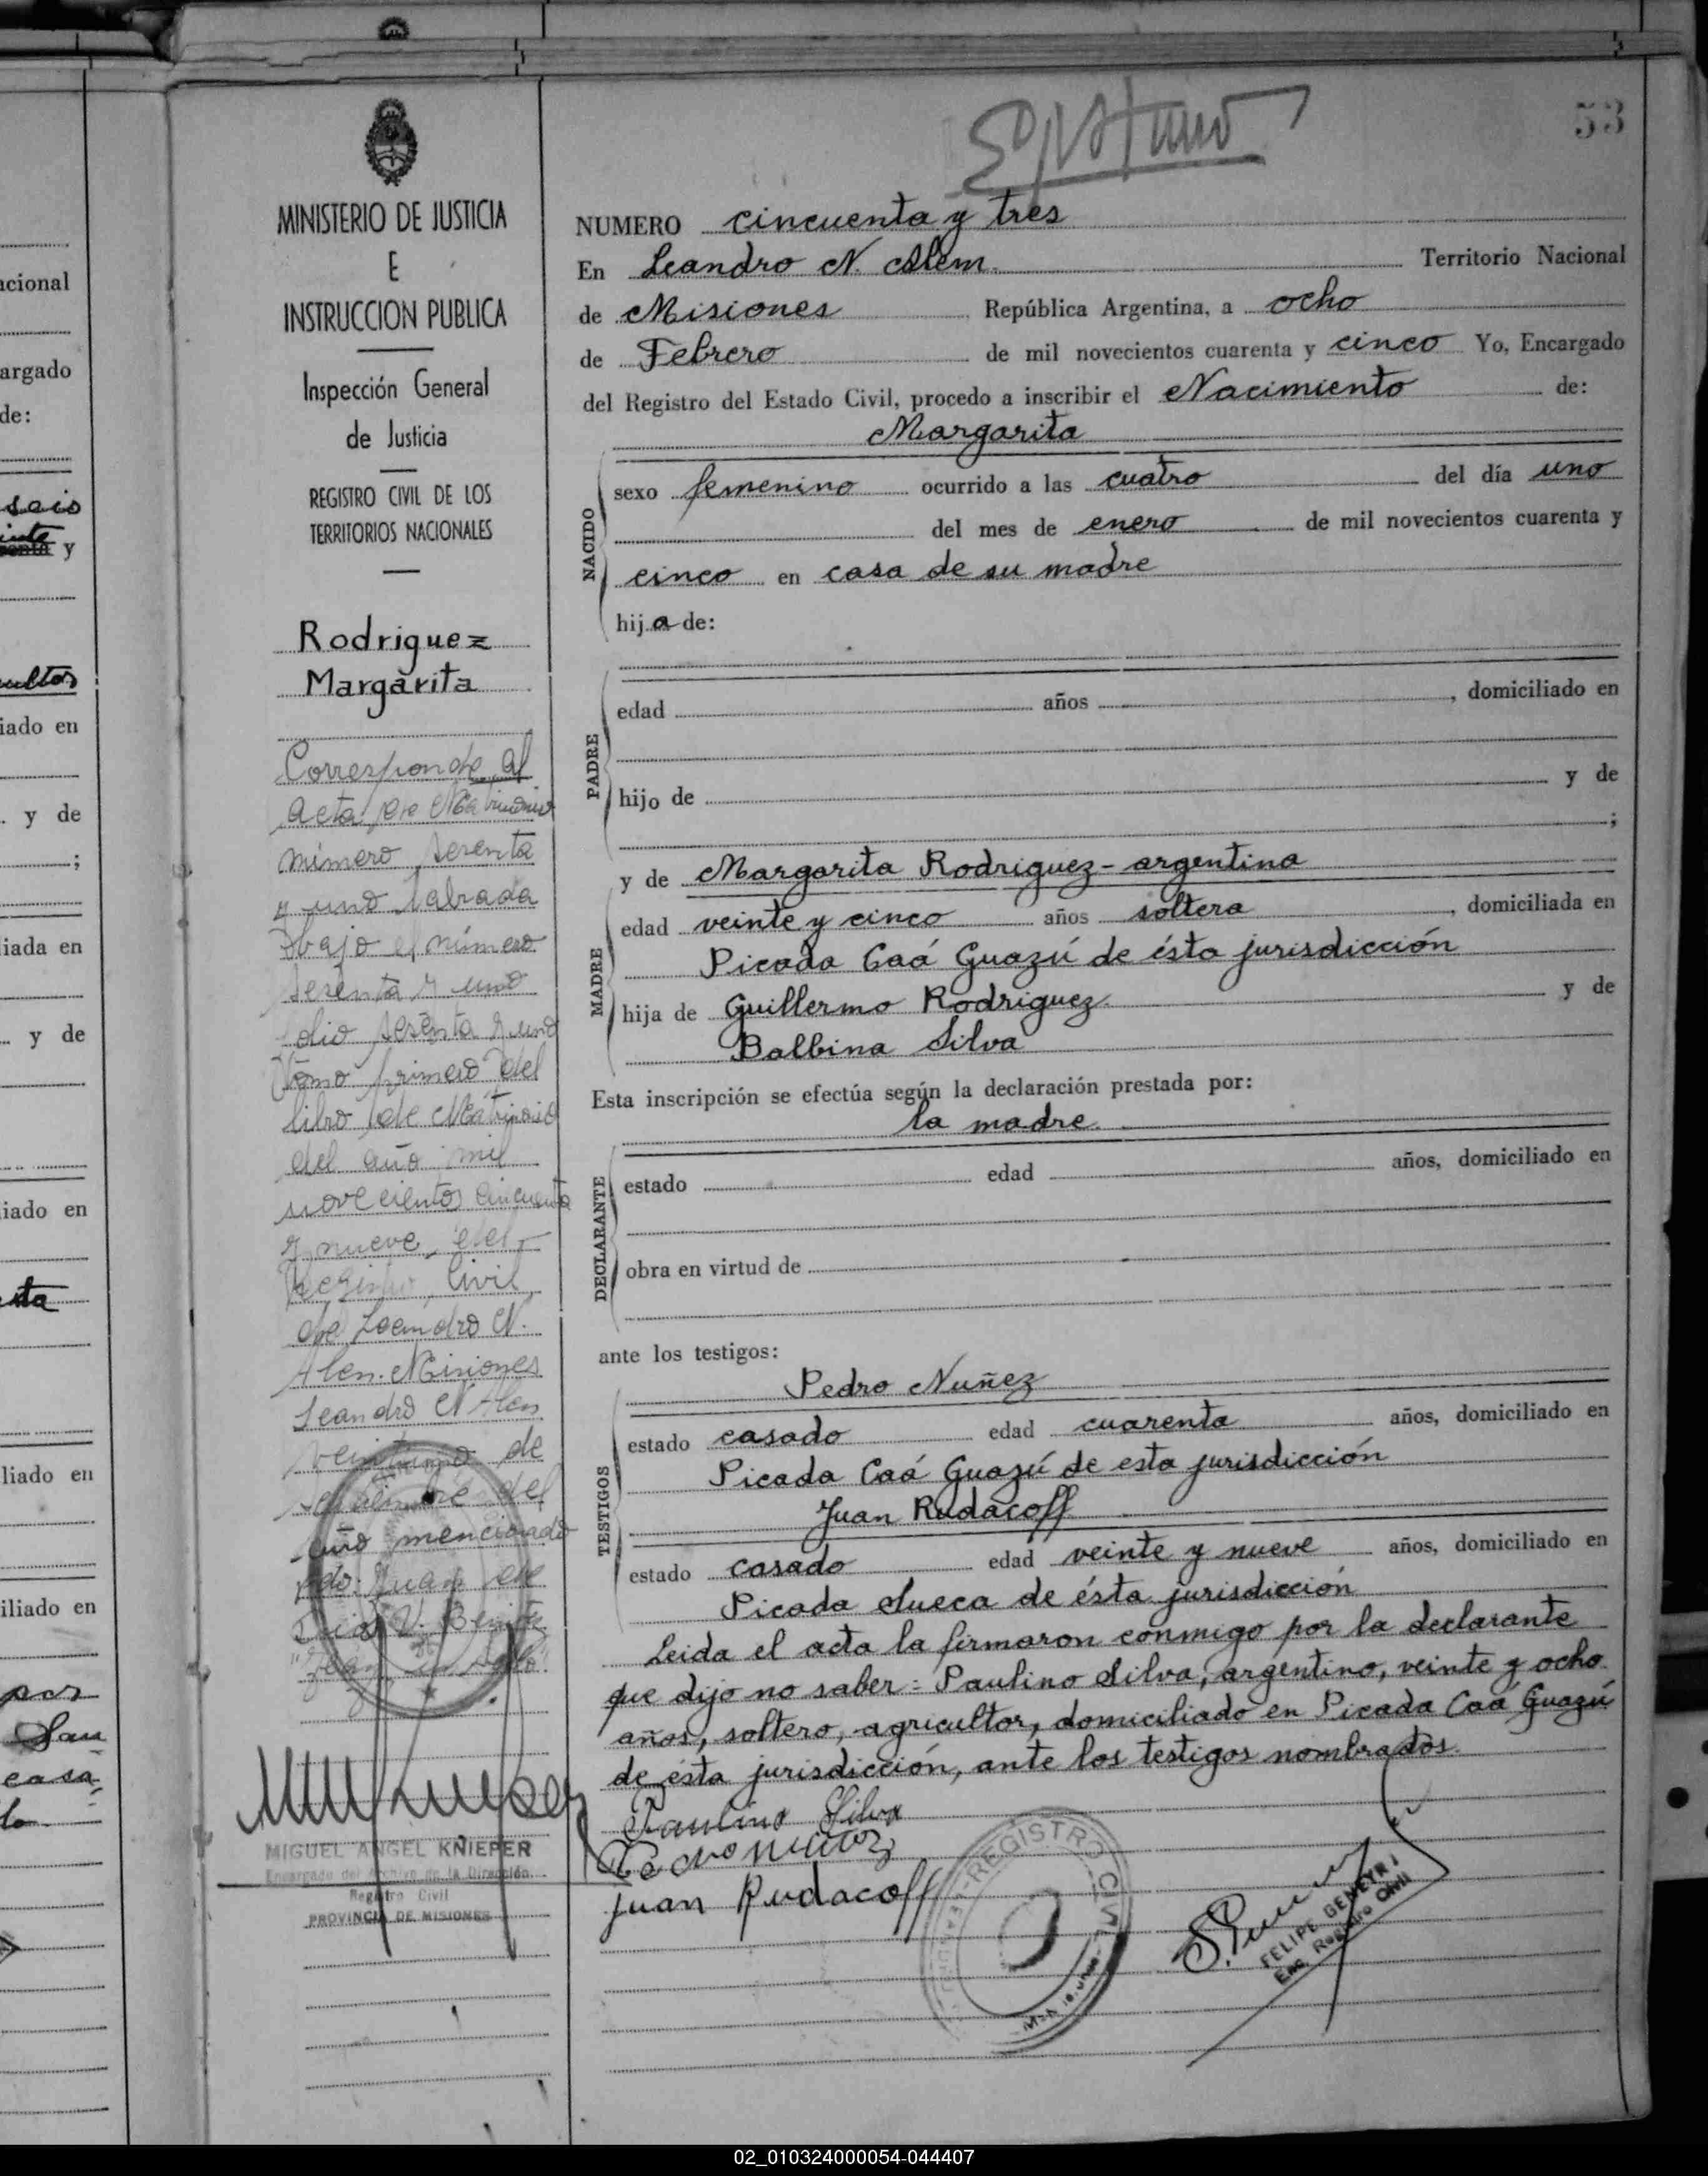 53
MINISTERIO DE JUSTICIA
E
INSTRUCCION PUBLICA
Inspección General
de Justicia
REGISTRO CIVIL DE LOS
TERRITORIOS NACIONALES
Rodriguez
Margarita
Corresponde al
acta de Matrimonio
número sesenta
y uno labrada
bajo el número
sesenta y uno
folio sesenta y uno
Tomo primero del
libro de Matrimonio
del año mil
novecientos cincuenta
y nueve, del
Registro Civil
de Leandro N.
Alem. Misiones
Leandro N Alem
veintiuno de
septiembre del
año mencionado
fdo: Juan de
Dios V. Benitez
MIGUEL ANGEL KNIEPER
Encargado del Archivo de la Dirección
Registro Civil
PROVINCIA DE MISIONES
NUMERO cincuenta y tres
En Leandro N. Alem. Territorio Nacional
de Misiones República Argentina, a ocho
de Febrero de mil novecientos cuarenta y cinco Yo, Encargado
del Registro del Estado Civil, procedo a inscribir el Nacimiento de:
Margarita
NACIDO
sexo femenino ocurrido a las cuatro del día uno
del mes de enero de mil novecientos cuarenta y
cinco en casa de su madre
hija de:
PADRE
edad años , domiciliado en
hijo de y de
;
MADRE
y de Margarita Rodriguez - argentina
edad veinte y cinco años soltera , domiciliada en
Picada Caá Guazú de ésta jurisdicción
hija de Guillermo Rodriguez y de
Balbina Silva
Esta inscripción se efectúa según la declaración prestada por:
la madre.
DECLARANTE
estado edad años, domiciliado en
obra en virtud de
ante los testigos:
TESTIGOS
Pedro Nuñez
estado casado edad cuarenta años, domiciliado en
Picada Caá Guazú de esta jurisdicción
Juan Rudacoff
estado casado edad veinte y nueve años, domiciliado en
Picada Sueca de ésta jurisdicción
Leida el acta la firmaron conmigo por la declarante
que dijo no saber: Paulino Silva, argentino, veinte y ocho
años, soltero, agricultor, domiciliado en Picada Caá Guazú
de ésta jurisdicción, ante los testigos nombrados.
Paulino Silva
Pedro Nuñez
Juan Rudacoff
REGISTRO CIVIL
FELIPE GENEYRI
Enc. Registro Civil
acional
argado
de:
seis
y
iado en
y de
;
liada en
y de
iado en
liado en
iliado en
por
casa
02_010324000054-044407